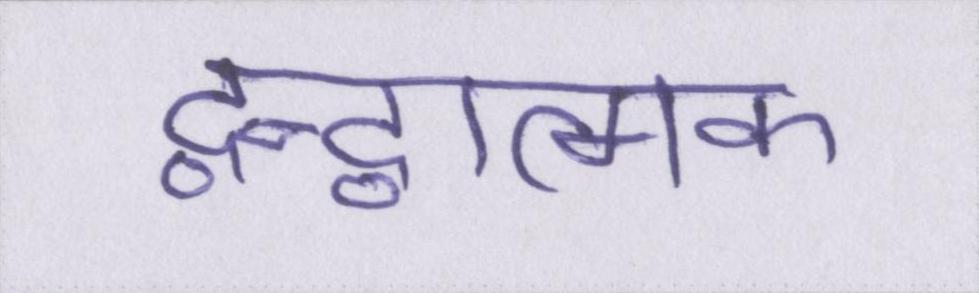 द्वन्द्वात्मक